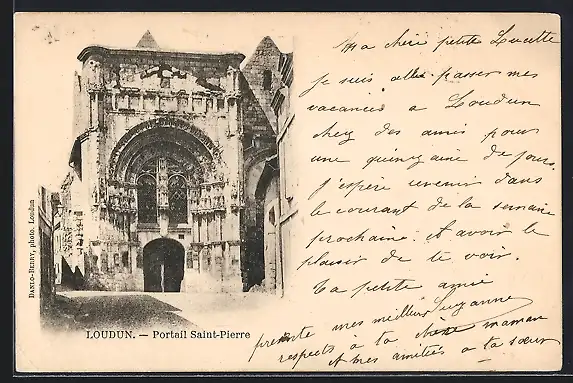 Ma chère petite Lucette
je suis allée passer mes
vacances a Loudun
chez des amis pour
une quinzaine de jours.
j'espère revenir dans
le courant de la semaine
prochaine. et avoir le
plaisir de te voir.
Ta petite amie
Suzanne
présente mes meilleurs
respects a ta chère maman
et mes amitiés a ta sœur
DANLO-BERRY, photo. Loudun
LOUDUN. — Portail Saint-Pierre